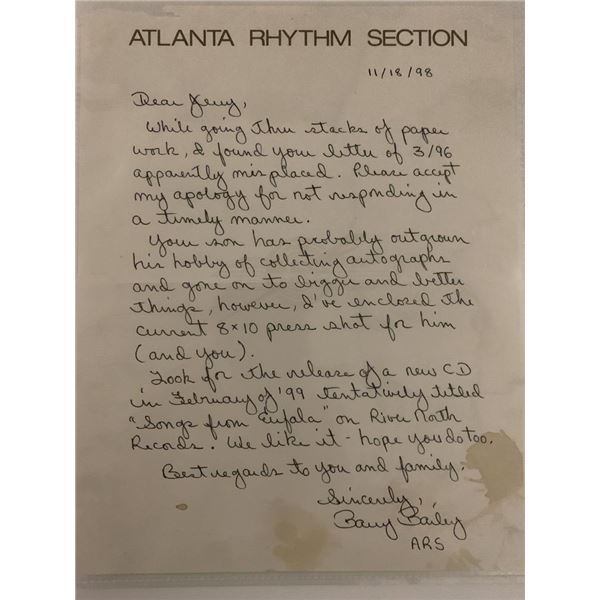 ATLANTA RHYTHM SECTION
11/18/98
Dear Jerry,
While going thru stacks of paper
work, I found your letter of 3/96
apparently misplaced. Please accept
my apology for not responding in
a timely manner.
Your son has probably outgrown
his hobby of collecting autographs
and gone on to bigger and better
things, however, I've enclosed the
current 8x10 press shot for him
(and you).
Look for the release of a new CD
in February of '99 tentatively titled
"Songs from Eufala" on River North
Records. We like it - hope you do too.
Best regards to you and family.
Sincerely,
Barry Bailey
ARS